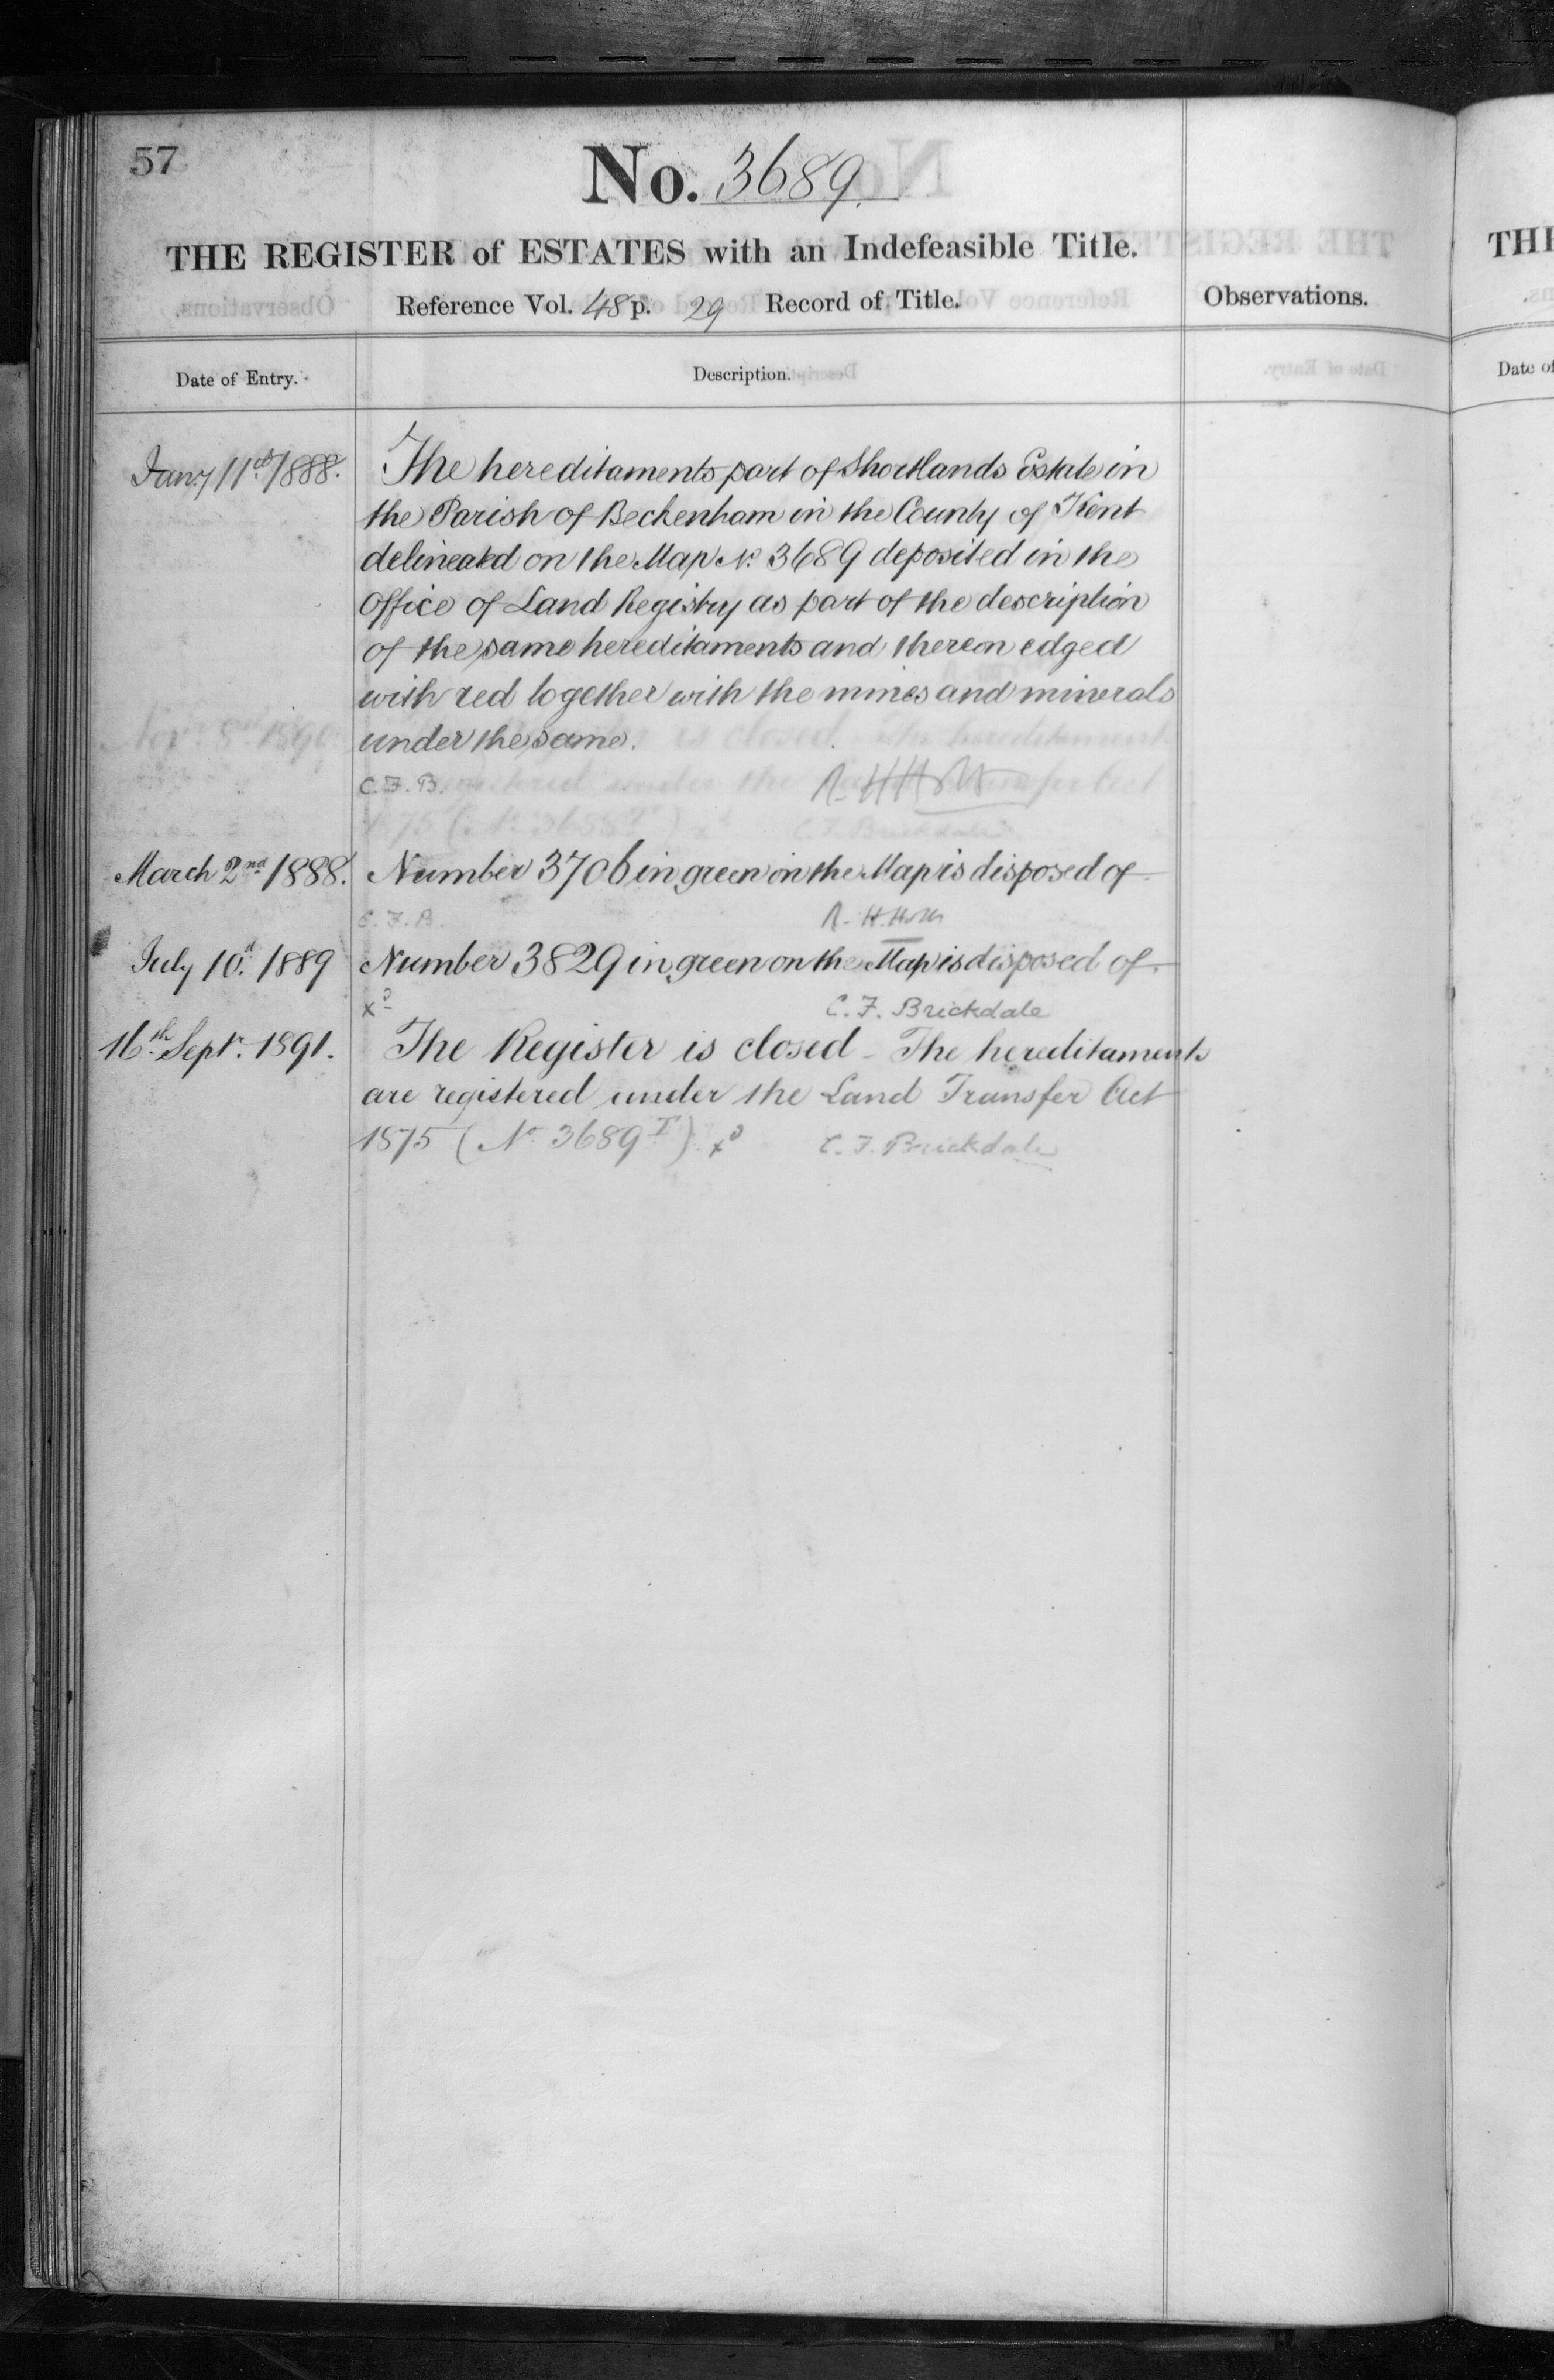 57
No. 3689.
THE REGISTER of ESTATES with an Indefeasible Title.
Reference Vol. 48 p. 29 Record of Title.
Observations.
Date of Entry.
Description.
Jany 11th 1888. The hereditaments part of Shortlands Estate in
the Parish of Beckenham in the County of Kent
delineated on the Map No. 3689 deposited in the
Office of Land Registry as part of the description
of the same hereditaments and thereon edged
with red together with the mines and minerals
under the same.
C.F.B. R. H. Holt
March 2nd 1888. Number 3706 in green on the Map is disposed of
C.F.B. R. H. Holt
July 10. 1889 Number 3829 in green on the Map is disposed of.
xD C. F. Brickdale
16th Sept. 1891. The Register is closed - The hereditaments
are registered under the Land Transfer Act
1875 (No. 3689 T) xD C. F. Brickdale
TH
Date of